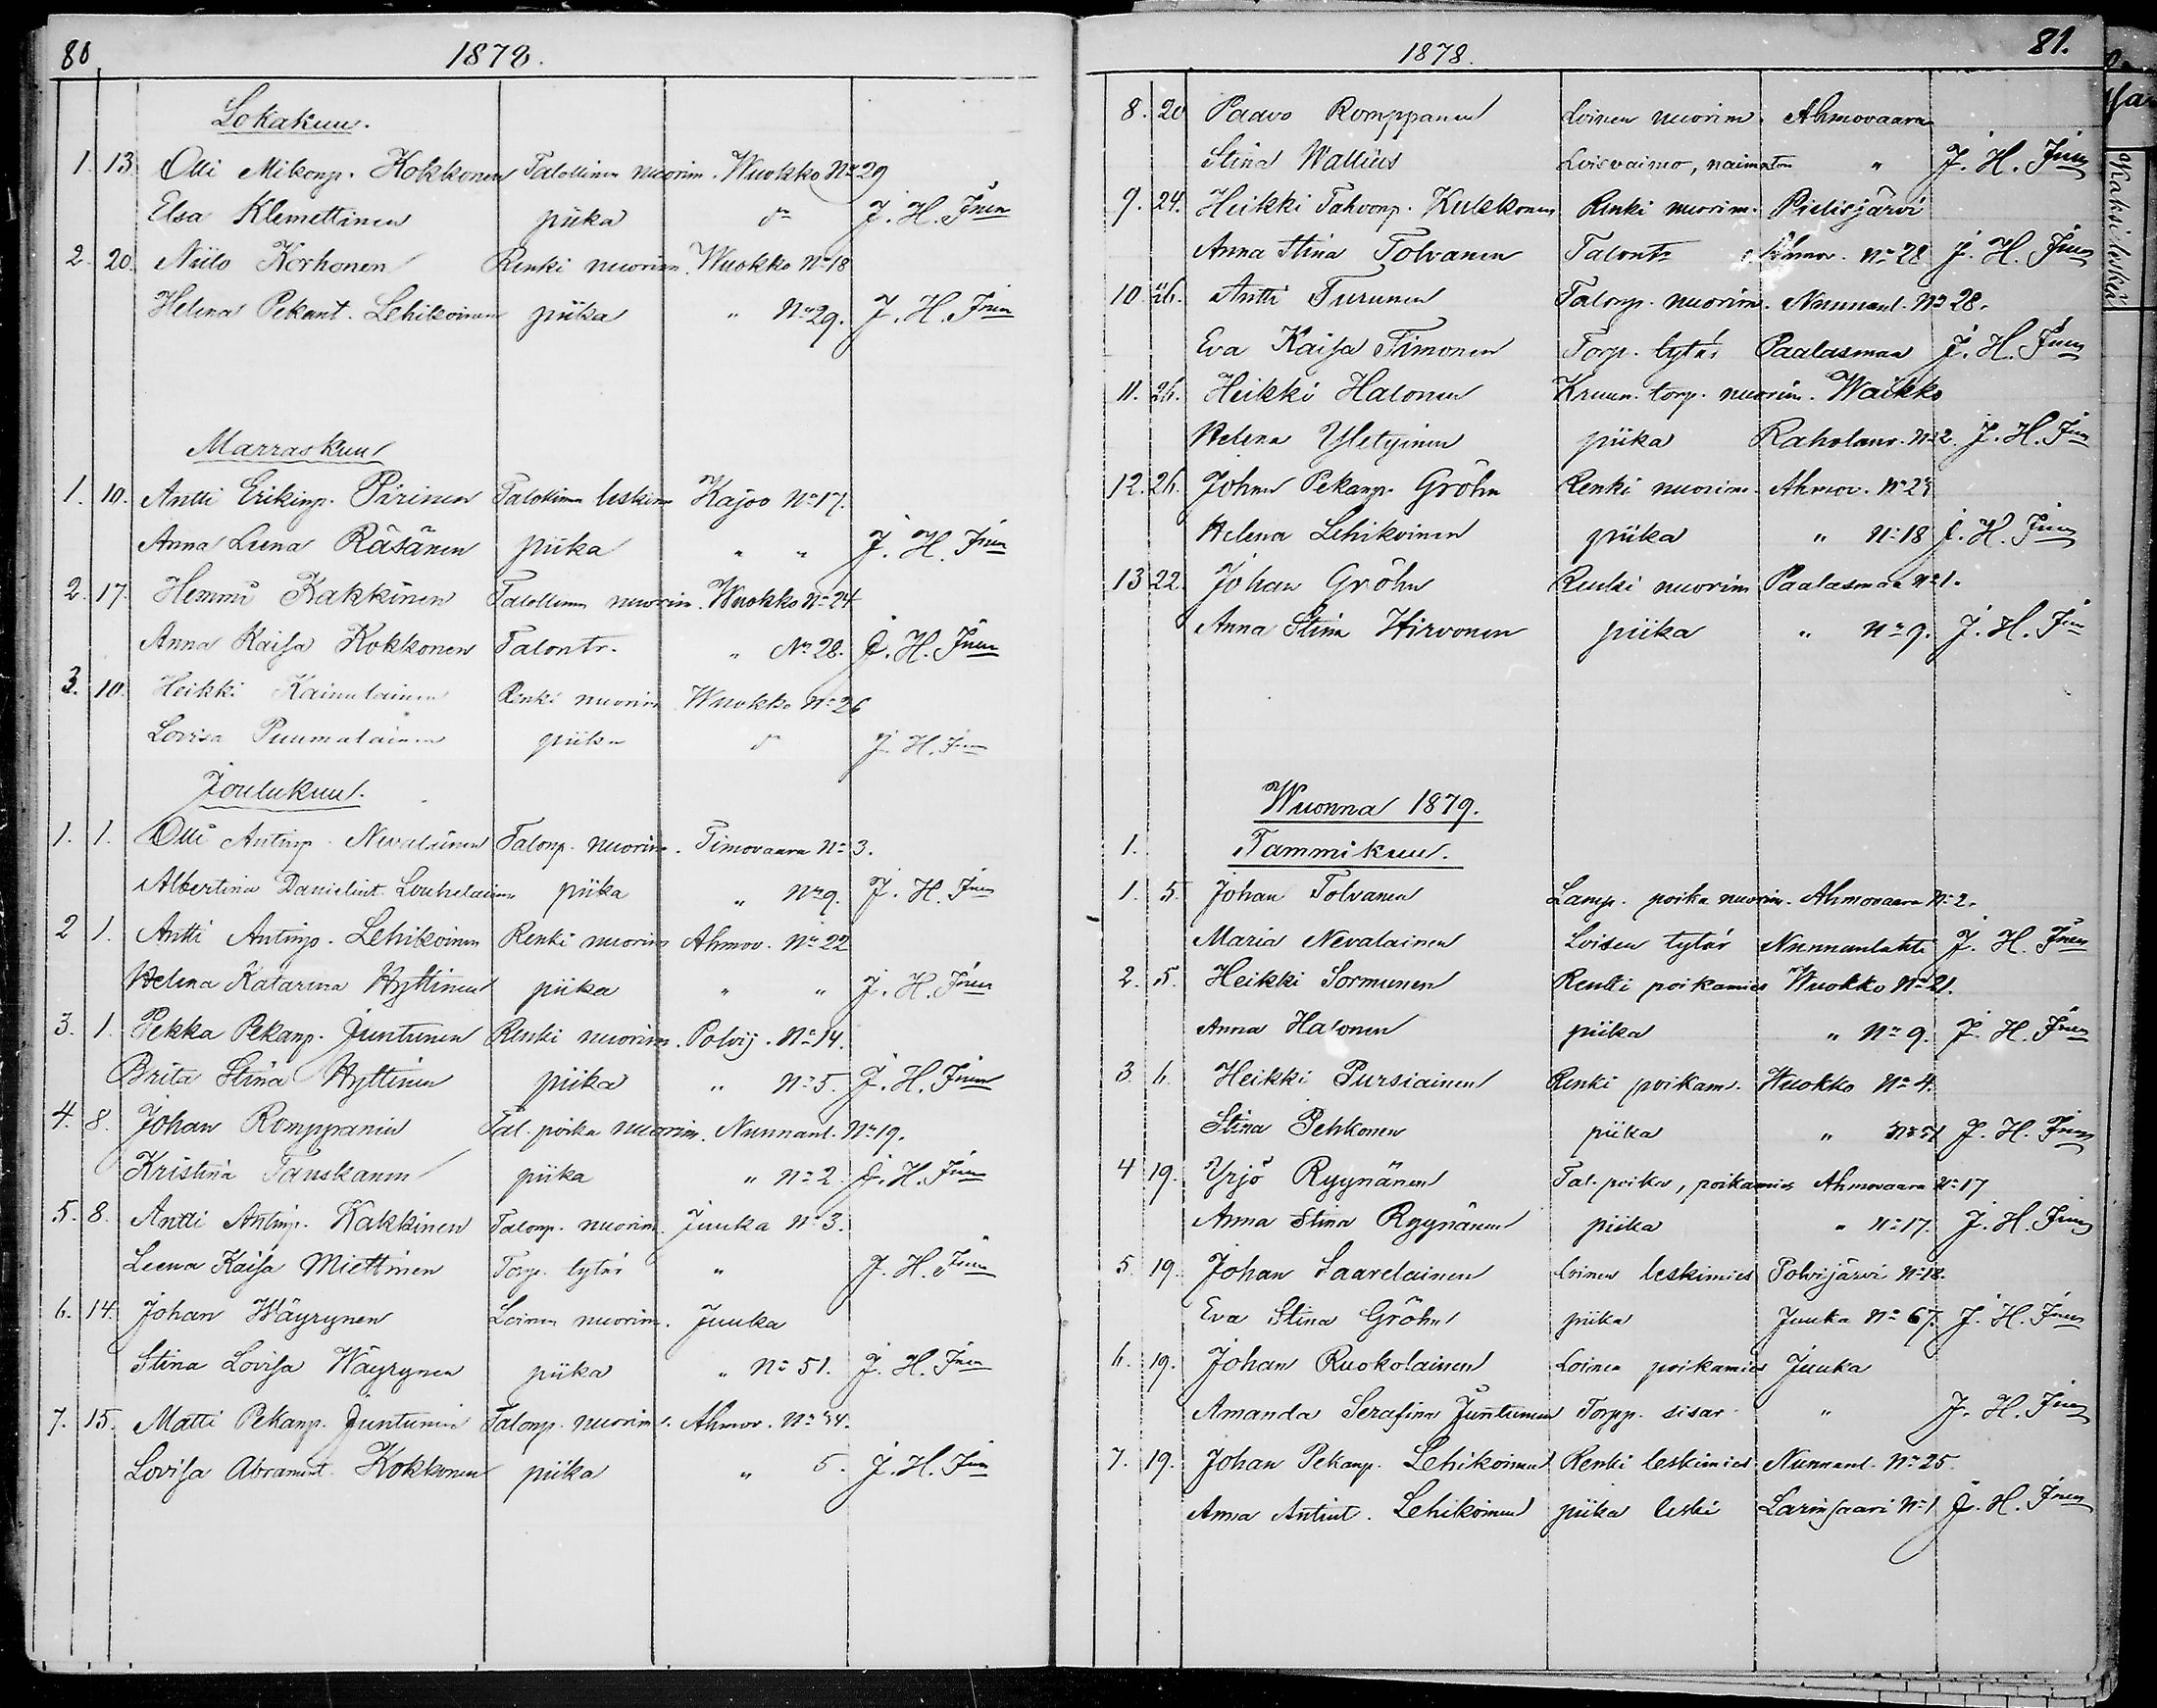 80
1878.
Lokakuu.
1. 13. Olli Mikonp. Kokkonen Talollinen nuorim. Wuokko No 29
Elsa Klemettinen piika do J. H. Jnen
2. 20. Niilo Korhonen Renki nuorim. Wuokko No 18
Helena Pekant. Lehikoinen piika " No 29. J. H. Jnen
Marraskuu
1. 10. Antti Erikinp. Piirinen Talollinen leskim Kajoo No 17.
Anna Leena Räsänen piika " " J. H. Jnen
2. 17. Hemmi Kakkinen Talollinen nuorim. Wuokko No 24
Anna Kaisa Kokkonen Talontr. " No 28. J. H. Jnen
3. 10. Heikki Kainulainen Renki nuorim Wuokko No 26
Lovisa Puumalainen piika do J. H. Jnen
Joulukuu.
1. 1. Olli Antinp. Nevalainen Talonp. nuorim. Timovaara No 3.
Albertina Danielint. Louhelainen piika " No 9. J. H. Jnen
2 1. Antti Antinp. Lehikoinen Renki nuorim Ahmov. No 22
Helena Katarina Hyttinen piika " " J. H. Jnen
3. 1. Pekka Pekanp. Juntunen Renki nuorim. Polvij. No 14.
Brita Stina Hyttinen piika " No 5. J. H. Jnen
4. 8. Johan Romppanen Tal. poika nuorim. Nunnanl. No 19.
Kristina Tanskanen piika " No 2. J. H. Jnen
5. 8. Antti Antinp. Kakkinen Talonp. nuorim. Juuka No 3.
Leena Kaisa Miettinen Torp. tytär " J. H. Jnen
6. 14. Johan Wäyrynen Loinen nuorim. Juuka
Stina Lovisa Wäyrynen piika " No 51. J. H. Jnen
7. 15. Matti Pekanp. Juntunen Talonp. nuorim. Ahmov. No 34.
Lovisa Abramint. Kokkonen piika " 5. J. H. Jnen
81.
1878.
8. 20 Paavo Romppanen Loinen nuorim. Ahmovaara
Stina Wallius Loisvaimo, naimaton " J. H. Jnen
9. 24. Heikki Tahvonp. Kukkonen Renki nuorim. Pielisjärvi
Anna Stina Tolvanen Talontr Ahmov. No 28 J. H. Jnen
10. 26. Antti Turunen Talonp. nuorim. Nunnanl. No 28.
Eva Kaisa Timonen Torp. tytär Paalasmaa J. H. Jnen
11. 26. Heikki Halonen Kruun. torp. nuorim. Waikko
Helena Yletyinen piika Raholanv. No 2. J. H. Jnen
12. 26. Johan Pekanp. Gröhn Renki nuorim. Ahmov. No 23
Helena Lehikoinen piika " No 18 J. H. Jnen
13 22. Johan Gröhn Renki nuorim Paalasmaa No 1.
Anna Stina Hirvonen piika " No 9. J. H. Jnen
Wuonna 1879.
1. Tammikuu.
1. 5. Johan Tolvanen Lamp. poika nuorim. Ahmovaara No 2.
Maria Nevalainen Loisen tytär Nunnanlahti J. H. Jnen
2. 5. Heikki Sormunen Renki poikamies Wuokko No 21.
Anna Halonen piika " No 9. J. H. Jnen
3. 6. Heikki Pursiainen Renki poikam. Wuokko No 4.
Stina Pehkonen piika " J. H. Jnen
4 19. Yrjö Ryynänen Tal. poika, poikamies Ahmovaara No 17
Anna Stina Ryynänen piika " No 17. J. H. Jnen
5. 19. Johan Saarelainen Loinen leskimies Polvijärvi No 18.
Eva Stina Gröhn piika Juuka No 67. J. H. Jnen
6. 19. Johan Ruokolainen Loinen poikamies Juuka
Amanda Serafina Juntunen Torpp. sisar " J. H. Jnen
7. 19. Johan Pekanp. Lehikoinen Renki leskimies Nunnanl. No 25.
Anna Antint. Lehikoinen piika leski Larinsaari No 1 J. H. Jnen
Kaksi leskeä